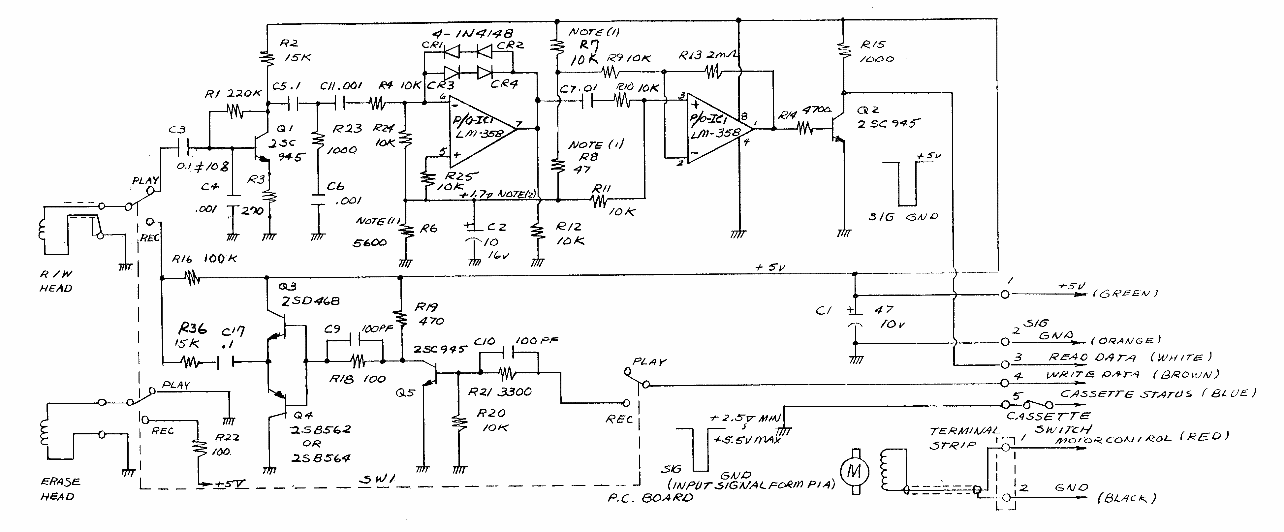 4-1N4148
NOTE(1)
R2
15K
CR1
CR2
R7
10K
R9 10K
R13 2mΩ
R15
1000
R1 220K
C5 .1
C11 .001
R4 10K
CR3
CR4
C7 .01
R10 10K
6
-
3
+
P/O-IC1
LM-358
7
P/O-IC1
LM-358
8
1
4
R14 4700
Q2
2SC945
C3
0.1 ±10%
Q1
2SC
945
R23
1000
R24
10K
5
+
NOTE(1)
R8
47
2
-
+5V
SIG GND
PLAY
C4
.001
R3
270
C6
.001
R25
10K
+1.7V NOTE(2)
R11
10K
REC
NOTE(1)
5600
R6
+
C2
10
16V
R12
10K
R/W
HEAD
R16 100K
+5V
Q3
2SD468
R19
470
C1
+
47
10V
1
+5V
(GREEN)
R36
15K
C17
.1
C9
100PF
2SC945
C10
100PF
2
SIG
GND
(ORANGE)
3
READ DATA (WHITE)
R18 100
Q5
R21 3300
PLAY
4
WRITE DATA (BROWN)
PLAY
REC
R22
100
Q4
2SB562
OR
2SB564
R20
10K
REC
+2.5V MIN
+5.5V MAX
5
CASSETTE STATUS (BLUE)
CASSETTE
SWITCH
TERMINAL
STRIP
1
MOTOR CONTROL (RED)
+5V
SW1
SIG
GND
(INPUT SIGNAL FORM PIA)
P.C. BOARD
M
2
GND
(BLACK)
ERASE
HEAD